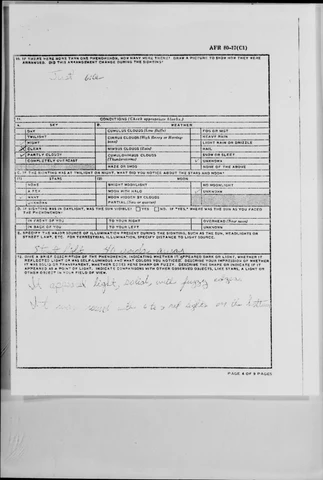 AFR 80-17(C1)
10. IF THERE WERE MORE THAN ONE PHENOMENON, HOW MANY WERE THERE? DRAW A PICTURE TO SHOW HOW THEY WERE
ARRANGED. DID THIS ARRANGEMENT CHANGE DURING THE SIGHTING?
Just one
11. CONDITIONS (Check appropriate blocks.)
SKY WEATHER
DAY CUMULUS CLOUDS (Low fluffy) FOG OR MIST
TWILIGHT CIRRUS CLOUDS (High fleecy or Herring-bone) HEAVY RAIN
NIGHT LIGHT RAIN OR DRIZZLE
CLEAR NIMBUS CLOUDS (Rain) HAIL
PARTLY CLOUDY CUMULONIMBUS CLOUDS (Thunderstorms) SNOW OR SLEET
COMPLETELY OVERCAST UNKNOWN
HAZE OR SMOG NONE OF THE ABOVE
IF THE SIGHTING WAS AT TWILIGHT OR NIGHT, WHAT DID YOU NOTICE ABOUT THE STARS AND MOON?
STARS MOON
NONE BRIGHT MOONLIGHT NO MOONLIGHT
A FEW MOON WITH HALO UNKNOWN
MANY MOON HIDDEN BY CLOUDS
UNKNOWN PARTIAL (New or quarter)
IF SIGHTING WAS IN DAYLIGHT, WAS THE SUN VISIBLE? YES NO. IF "YES," WHERE WAS THE SUN AS YOU FACED
THE PHENOMENON?
IN FRONT OF YOU TO YOUR RIGHT OVERHEAD (Near noon)
IN BACK OF YOU TO YOUR LEFT UNKNOWN
SPECIFY THE MAJOR SOURCE OF ILLUMINATION PRESENT DURING THE SIGHTING, SUCH AS THE SUN, HEADLIGHTS OR
STREET LAMP, ETC. FOR TERRESTRIAL ILLUMINATION, SPECIFY DISTANCE TO LIGHT SOURCE.
GIVE A BRIEF DESCRIPTION OF THE PHENOMENON, INDICATING WHETHER IT APPEARED DARK OR LIGHT, WHETHER IT
REFLECTED LIGHT OR WAS SELF-LUMINOUS AND WHAT COLORS YOU NOTICED. DESCRIBE YOUR IMPRESSION OF WHETHER
IT WAS SOLID OR TRANSPARENT, WHETHER EDGES WERE SHARP OR FUZZY. DESCRIBE THE SHAPE OR INDICATE IF IT
APPEARED AS A POINT OF LIGHT. INDICATE COMPARISONS WITH OTHER OBSERVED OBJECTS, LIKE STARS, A LIGHT OR
OTHER OBJECT IN YOUR FIELD OF VIEW.
It appeared light, solid, with fuzzy edges
PAGE 4 OF 5 PAGES